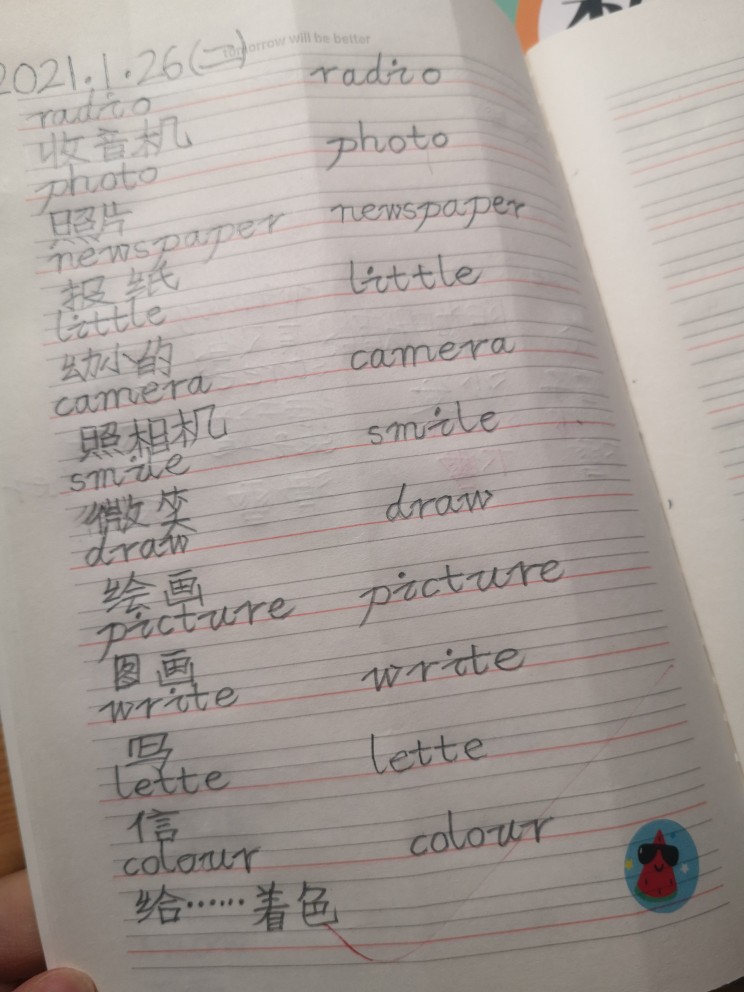 Tomorrow will be better
2021.1.26(二)
radio radio
收音机
photo photo
照片
newspaper newspaper
报纸
little little
幼小的
camera camera
照相机
smile smile
微笑
draw draw
绘画
picture picture
图画
write write
写
lette lette
信
colour colour
给……着色